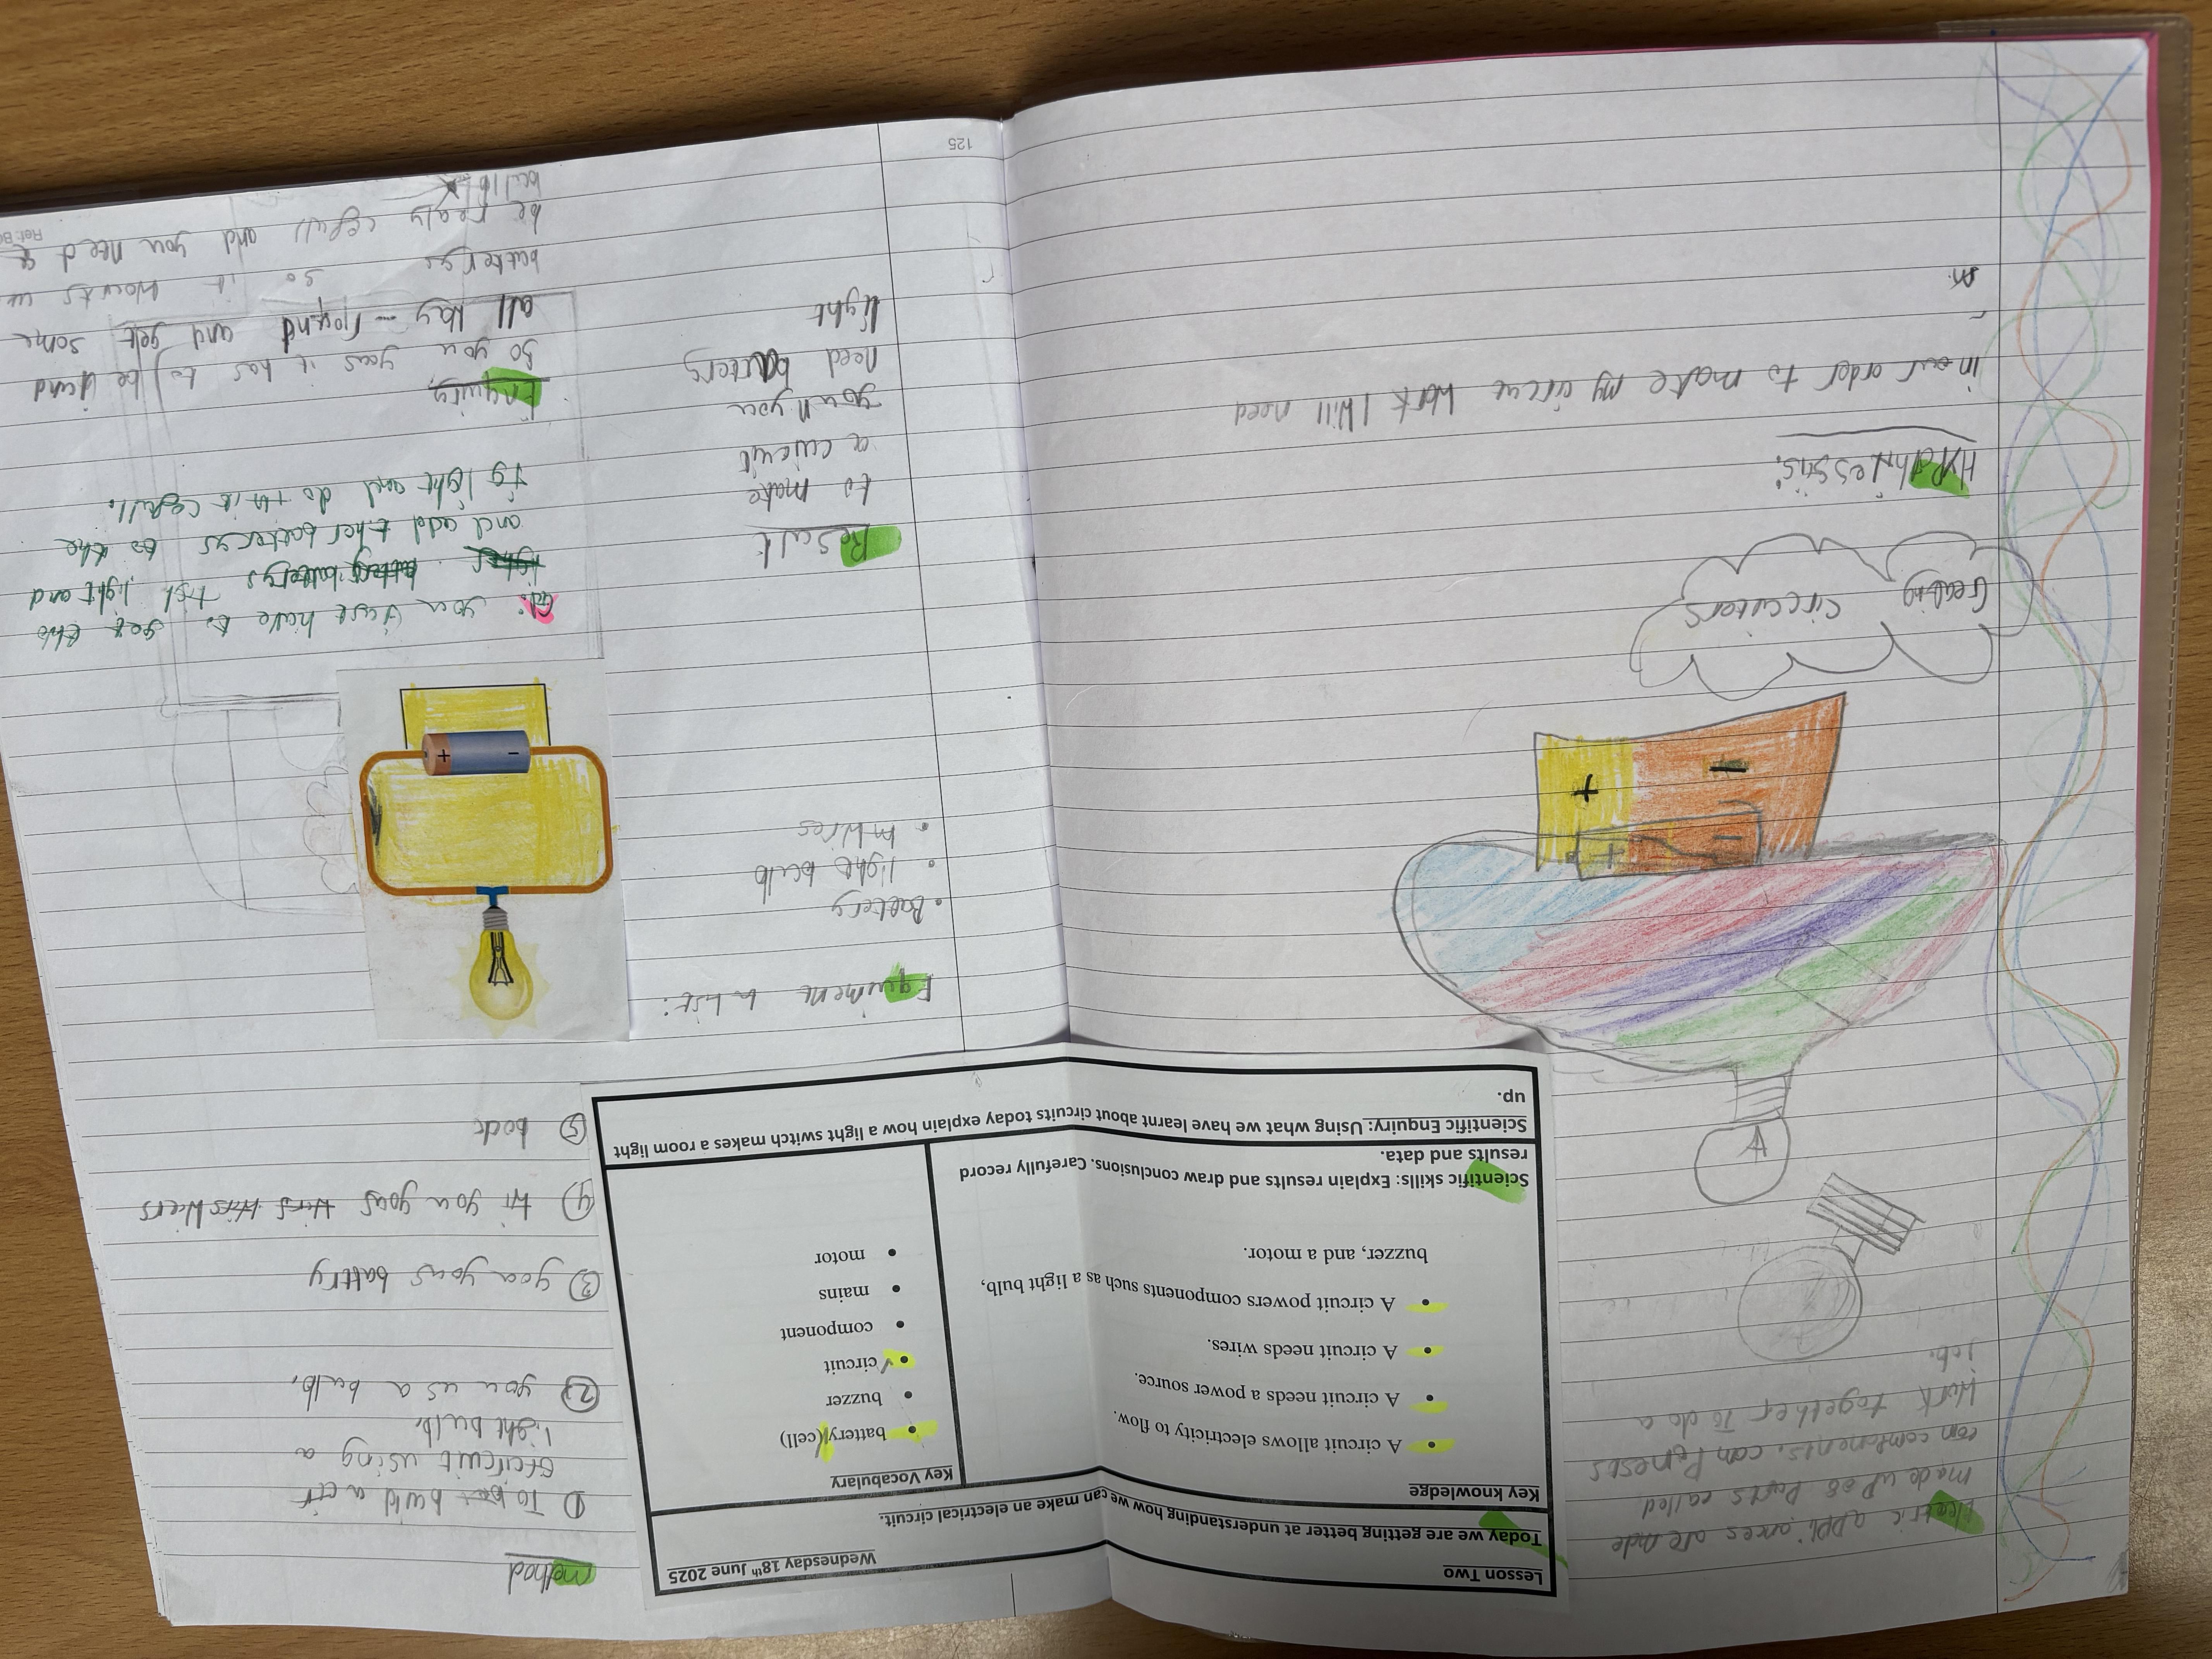 Electric appliances are made
made up of Parts called
com components. com Ponests
Work together To do a
job.
A
+ -
+ -
Creating
circuitors
Hypothessis:
in our order to make my circut Work I Will need
Lesson Two
Wednesday 18th June 2025
Today we are getting better at understanding how we can make an electrical circuit.
Key knowledge
• A circuit allows electricity to flow.
• A circuit needs a power source.
• A circuit needs wires.
• A circuit powers components such as a light bulb,
buzzer, and a motor.
Key Vocabulary
• battery (cell)
• buzzer
• circuit
• component
• mains
• motor
Scientific skills: Explain results and draw conclusions. Carefully record
results and data.
Scientific Enquiry: Using what we have learnt about circuits today explain how a light switch makes a room light
up.
Equiment List:
• Battery
• light bulb
• Wires
Result
to make
a cuicuit
you'll you
need battery
light
125
method
① To build a cir
circuit using a
light bulb.
② you us a bulb.
③ you yous battery
④ you yous Wiers
⑤
+ -
you just have to get the
batterys light and
and add ther batterys to the
light and do it cefull.
Enquiry
So you yous it has to be
all Way - round and get some
batterys so it
be realy cefull and you need a
bullb